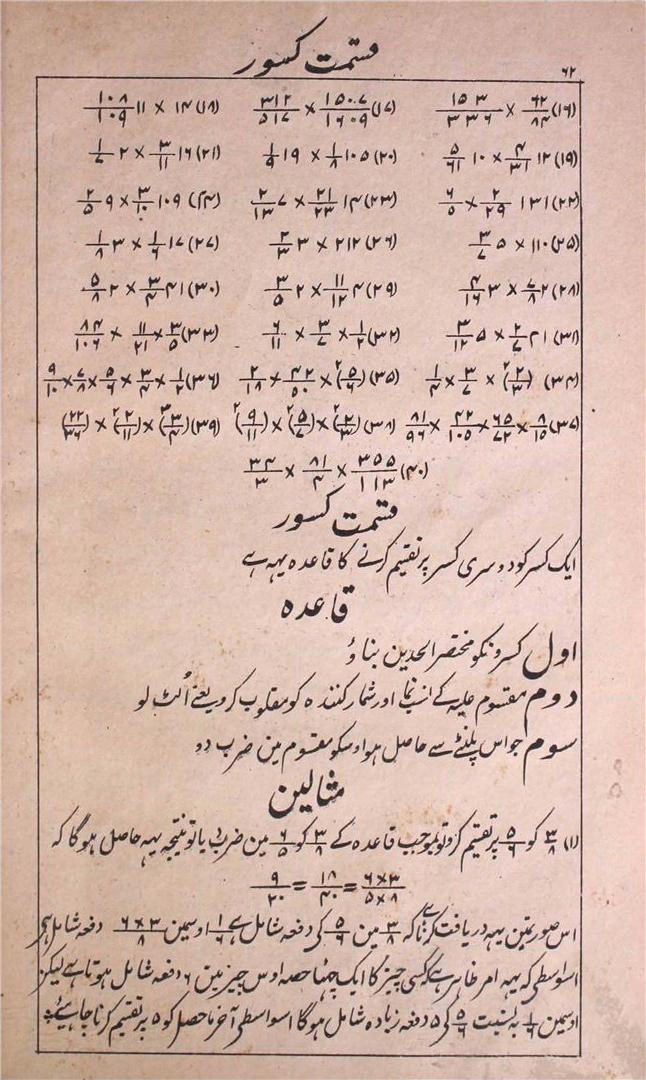 قسمت کسور
۶۲
(۱۶) ۶۲/۸۴ × ۱۵۳/۳۳۶ (۱۷) ۱۵۰۷/۱۶۰۹ × ۳۱۲/۵۱۷ (۱۸) ۱۴ × ۱۱ ۱۰۸/۱۰۹
(۱۹) ۱۲ ۴/۳۱ × ۱۰ ۵/۶۱ (۲۰) ۱۰۵ ۱/۸ × ۱۹ ۱/۹ (۲۱) ۱۶ ۳/۱۱ × ۲ ۱/۷
(۲۲) ۱۳۱ ۲/۲۹ × ۶/۵ (۲۳) ۱۴ ۲۱/۲۳ × ۷ ۲/۱۳ (۲۴) ۱۰۹ ۳/۱۰ × ۹ ۲/۵
(۲۵) ۱۱۰ × ۵ ۳/۷ (۲۶) ۲۱۲ × ۳ ۲/۳ (۲۷) ۱۷ ۱/۶ × ۳ ۱/۸
(۲۸) ۲ ۷/۸ × ۳ ۴/۱۶ (۲۹) ۴ ۱۱/۱۲ × ۲ ۳/۵ (۳۰) ۴۱ ۳/۴ × ۲ ۵/۸
(۳۱) ۴۱ ۲/۷ × ۵ ۳/۱۲ (۳۲) ۱/۲ × ۳/۷ × ۶/۱۱ (۳۳) ۳/۵ × ۱۱/۲۱ × ۸۴/۱۰۶
(۳۴) (۲/۳)۲ × ۳/۷ × ۱/۴ (۳۵) (۵/۶)۲ × ۴۲/۵۰ × ۲/۱۸ (۳۶) ۱/۲ × ۳/۴ × ۵/۶ × ۷/۸ × ۹/۱۰
(۳۷) ۸/۱۵ × ۶۵/۷۲ × ۲۲/۱۰۵ × ۸۱/۹۶ (۳۸) (۲/۳)۲ × (۵/۷)۲ × (۹/۱۱)۲ (۳۹) (۳/۴)۳ × (۲/۱۱)۲ × (۲۲/۳۶)
(۴۰) ۳۵۵/۱۱۳ × ۸۱/۴ × ۳۴/۳
قسمت کسور
ایک کسر کو دوسری کسر پر تقسیم کرنے کا قاعدہ یہہ ہے
قاعدہ
اول کسرونکو مختصر الحدین بناؤ
دوم مقسوم علیہ کے انسب نما اور شمار کنندہ کو مقلوب کرو یعنے اُلٹ لو
سوم جو اس پلٹنے سے حاصل ہو اوسکو مقسوم مین ضرب دو
مثالین
(۱) ۳/۸ کو ۵/۶ پر تقسیم کرو تو بموجب قاعدہ کے ۳/۸ کو ۶/۵ مین ضرب دیا تو نتیجہ یہہ حاصل ہوگا کہ
۶×۳/۵×۸ = ۱۸/۴۰ = ۹/۲۰
اس صورتمین یہہ دریافت کرنا ہے کہ ۳/۸ مین ۵/۶ کی دفعہ شامل ہے ۱/۶ اوسمین ۶×۳/۸ دفعہ شامل ہے
اسواسطی کہ یہہ امر ظاہر ہے کہ کسی چیز کا ایک چھٹا حصہ اوس چیز مین ۶ دفعہ شامل ہوتا ہے لیکن
اوسمین ۱/۶ بہ نسبت ۵/۶ کی ۵ دفعہ زیادہ شامل ہوگا اسواسطی آخر ماحصل کو ۵ پر تقسیم کرنا چاہیے